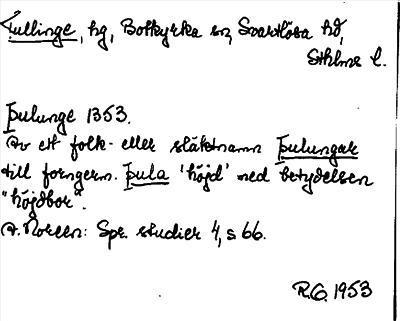 Tullinge, hg, Botkyrka sn, Svartlösa hd,
Sthlms l.
Þulunge 1353.
Av ett folk- eller släktnamn Þulungar
till forngerm. Þula 'höjd' med betydelsen
"höjdbor".
A. Noreen: Spr. studier 4, s 66.
R.G. 1953